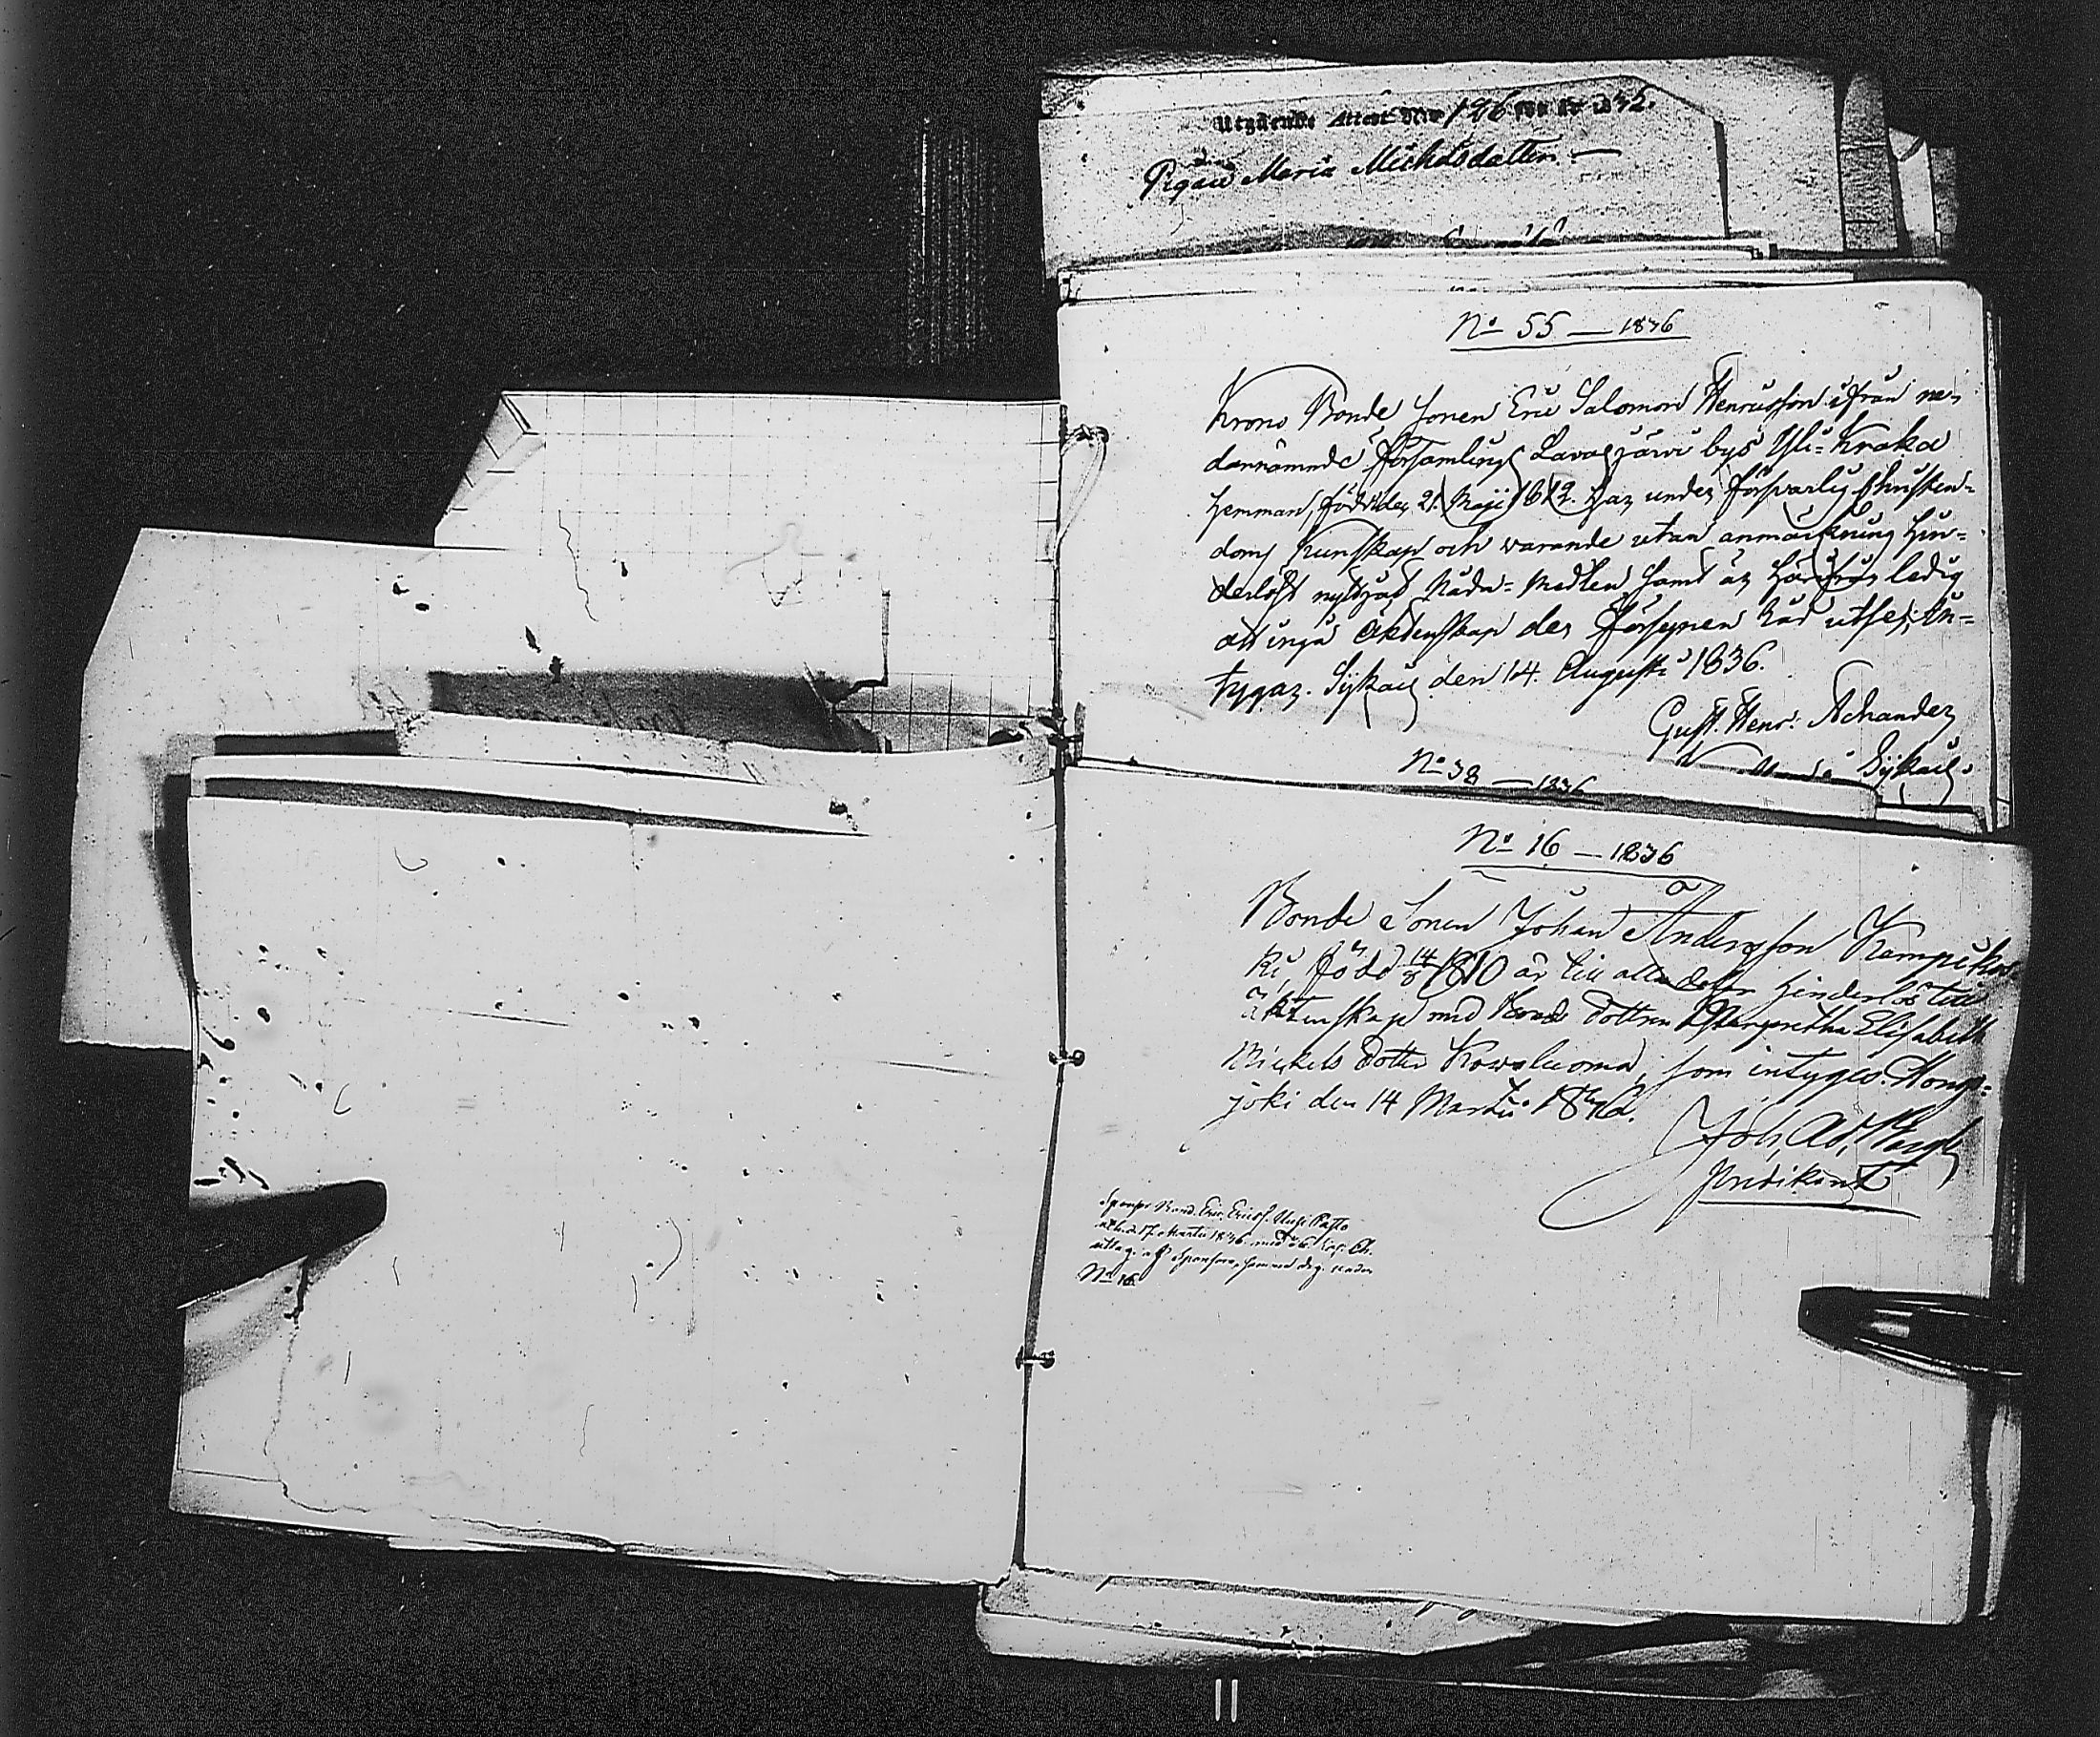 Utgående Attest N:o 126 för år 1842.
Pigan Maria Michelsdotter
N:o 55 — 1836
Krono Bonde Sonen Eric Salomon Henricsson ifrån ne-
dannämnde Församlings Lavasjärvi bys Yli=Kraka
hemman, född den 21. Maji 1812. har under försvarlig Christen-
doms Kunskap och warande utan anmärkning hin-
derlöst nyttjat Nådamedlen samt är härifrån ledig
att ingå äktenskap der Försynen täcks utse; In-
tygar. Sykais den 14. Augusti 1836.
Gust. Henr. Achander
Sykais.
N:o 38 — 1836
N:o 16 — 1836
Bonde Sonen Johan Andersson Kempikos-
ki, född 14/8 1810 är till alla delar hinderlös till
äktenskap med Bonde Dottren Margretha Elisabeth
Mickels Dotter Kowaluoma, som intygas. Hongo-
joki den 14 Martii 1836.
Joh. Ad.
Predikant
Sponsor Bond. Eric Ericss. Uusi Pasto
Martii 1836 med Cap. Ch.
af Sponsorn, samma dag under
N:o 16
11